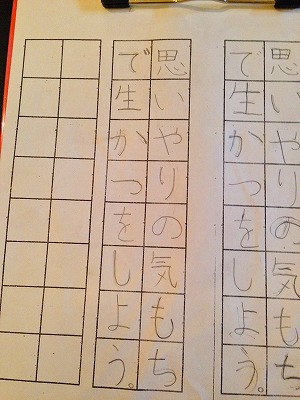 思いやりの気もち
で生かつをしよう。
思いやりの気もち
で生かつをしよう。